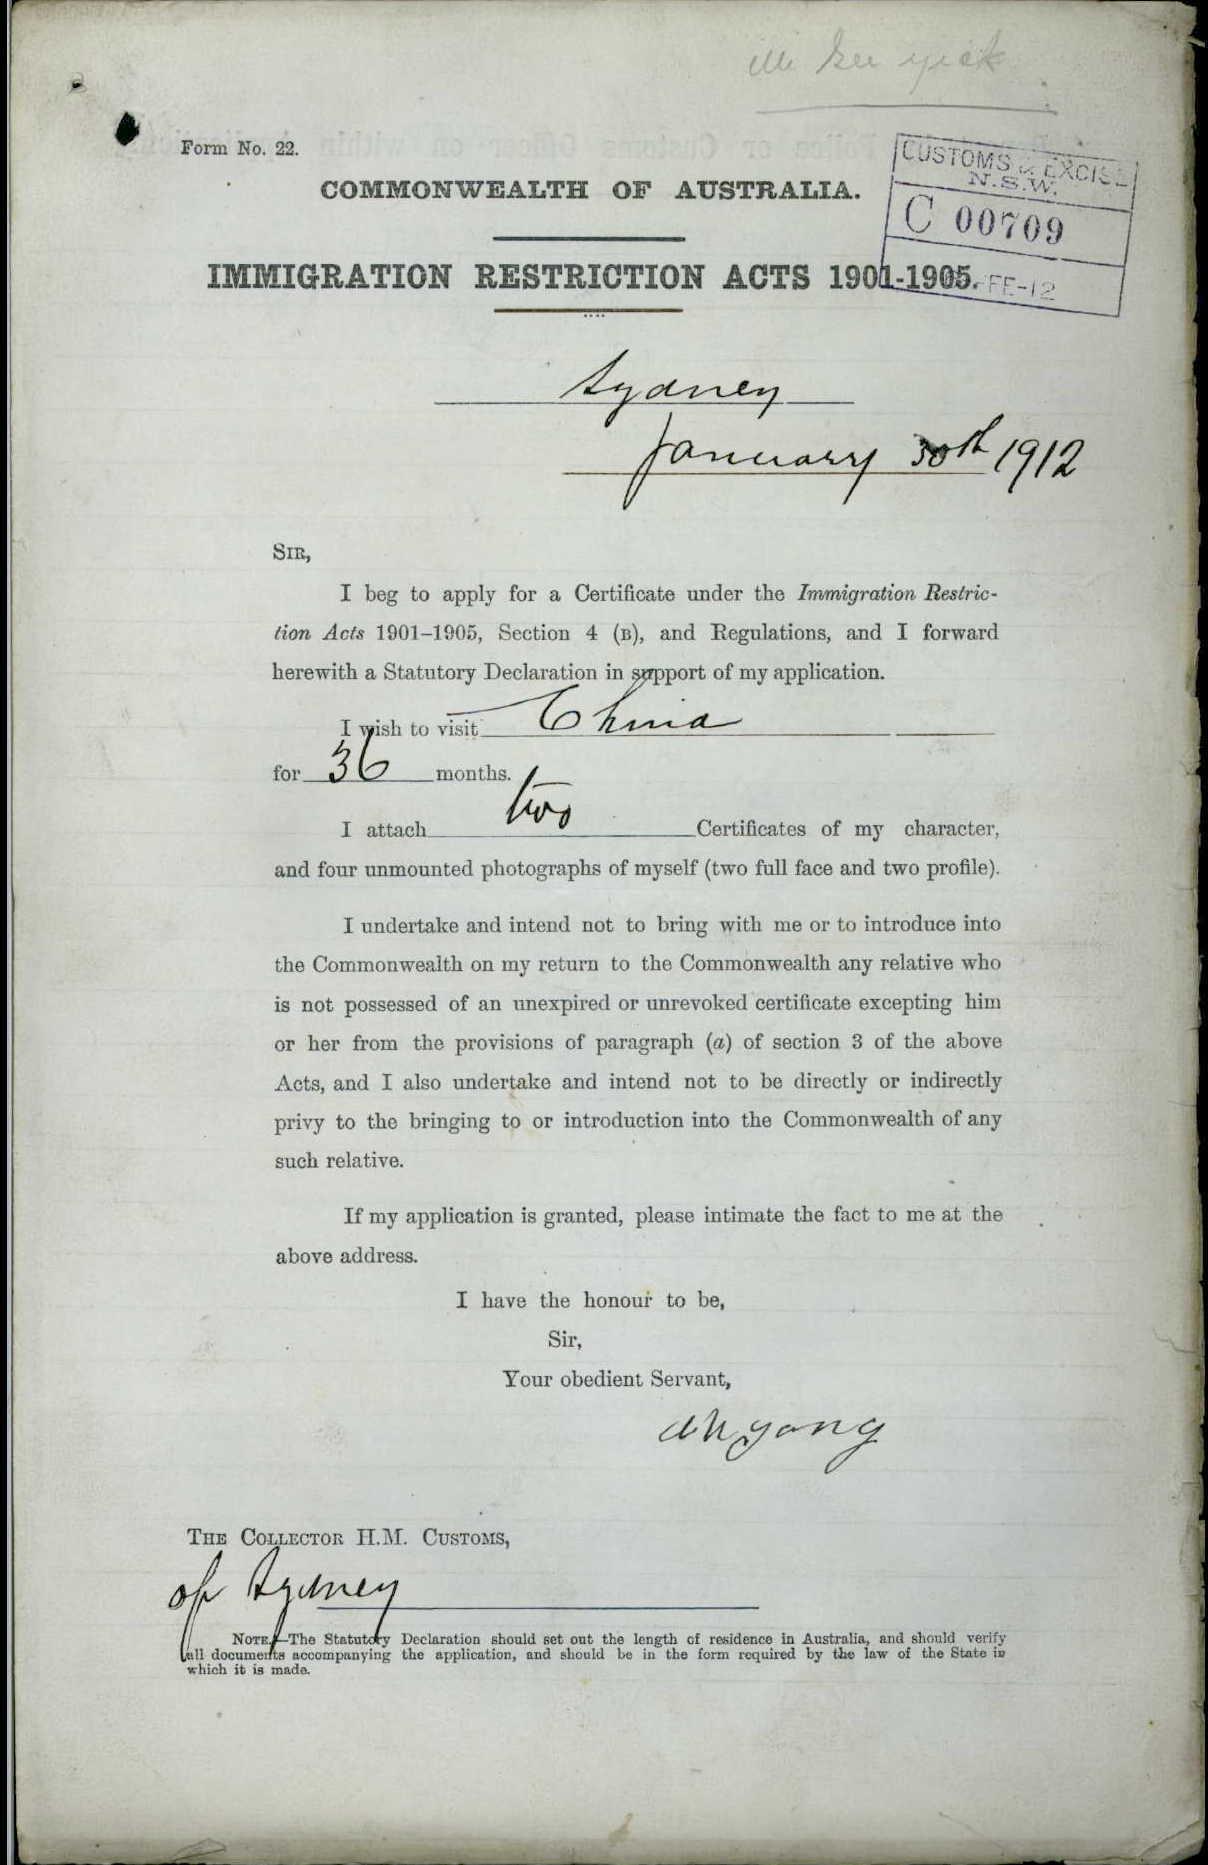 Form No. 22.
CUSTOMS & EXCISE
N.S.W.
C 00709
FE-12
COMMONWEALTH OF AUSTRALIA.
IMMIGRATION RESTRICTION ACTS 1901-1905.
Sydney
January 30th 1912
SIR,
I beg to apply for a Certificate under the Immigration Restric-
tion Acts 1901–1905, Section 4 (B), and Regulations, and I forward
herewith a Statutory Declaration in support of my application.
I wish to visit China
for 36 months.
I attach two Certificates of my character,
and four unmounted photographs of myself (two full face and two profile).
I undertake and intend not to bring with me or to introduce into
the Commonwealth on my return to the Commonwealth any relative who
is not possessed of an unexpired or unrevoked certificate excepting him
or her from the provisions of paragraph (a) of section 3 of the above
Acts, and I also undertake and intend not to be directly or indirectly
privy to the bringing to or introduction into the Commonwealth of any
such relative.
If my application is granted, please intimate the fact to me at the
above address.
I have the honour to be,
Sir,
Your obedient Servant,
Ah yong
THE COLLECTOR H.M. CUSTOMS,
of Sydney
NOTE.—The Statutory Declaration should set out the length of residence in Australia, and should verify
all documents accompanying the application, and should be in the form required by the law of the State in
which it is made.